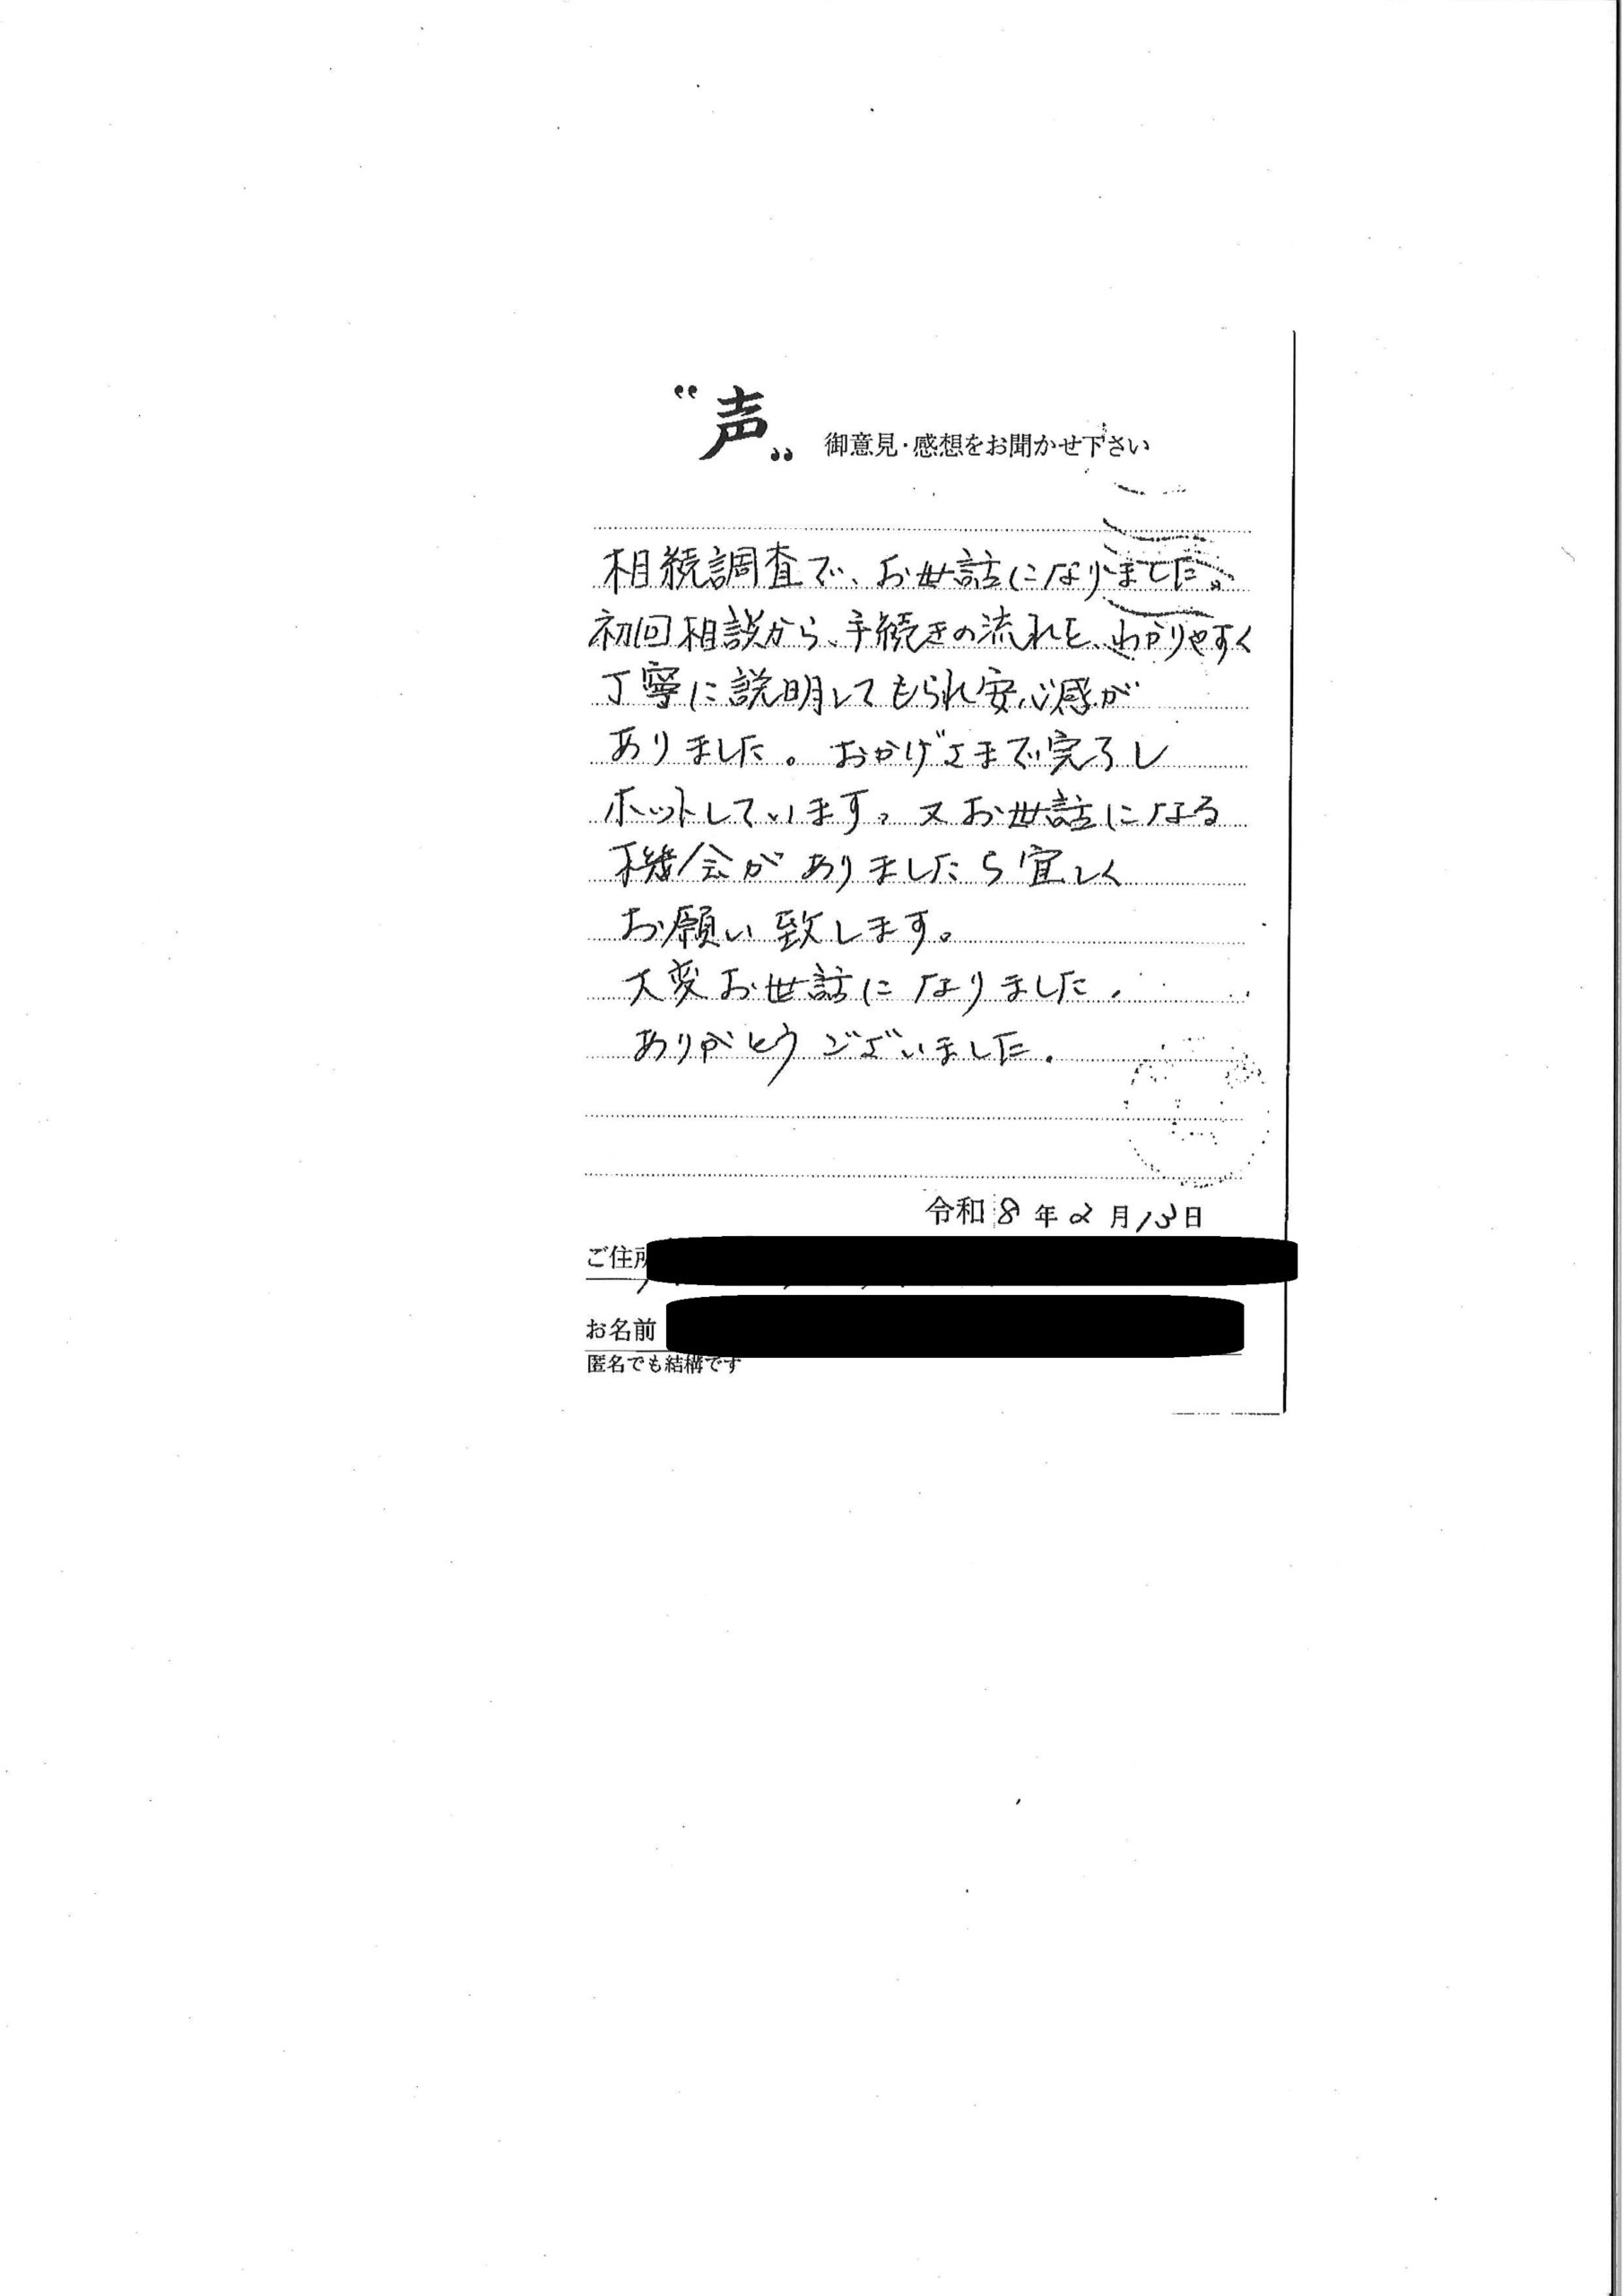 〝声〟 御意見・感想をお聞かせ下さい
相続調査で、お世話になりました。
初回相談から、手続きの流れを、わかりやすく
丁寧に説明してもられ安心感が
ありました。おかげさまで完了し
ホットしています。又お世話になる
機会がありましたら宜しく
お願い致します。
大変お世話になりました。
ありがとうございました。
令和8年2月13日
ご住所
お名前
匿名でも結構です